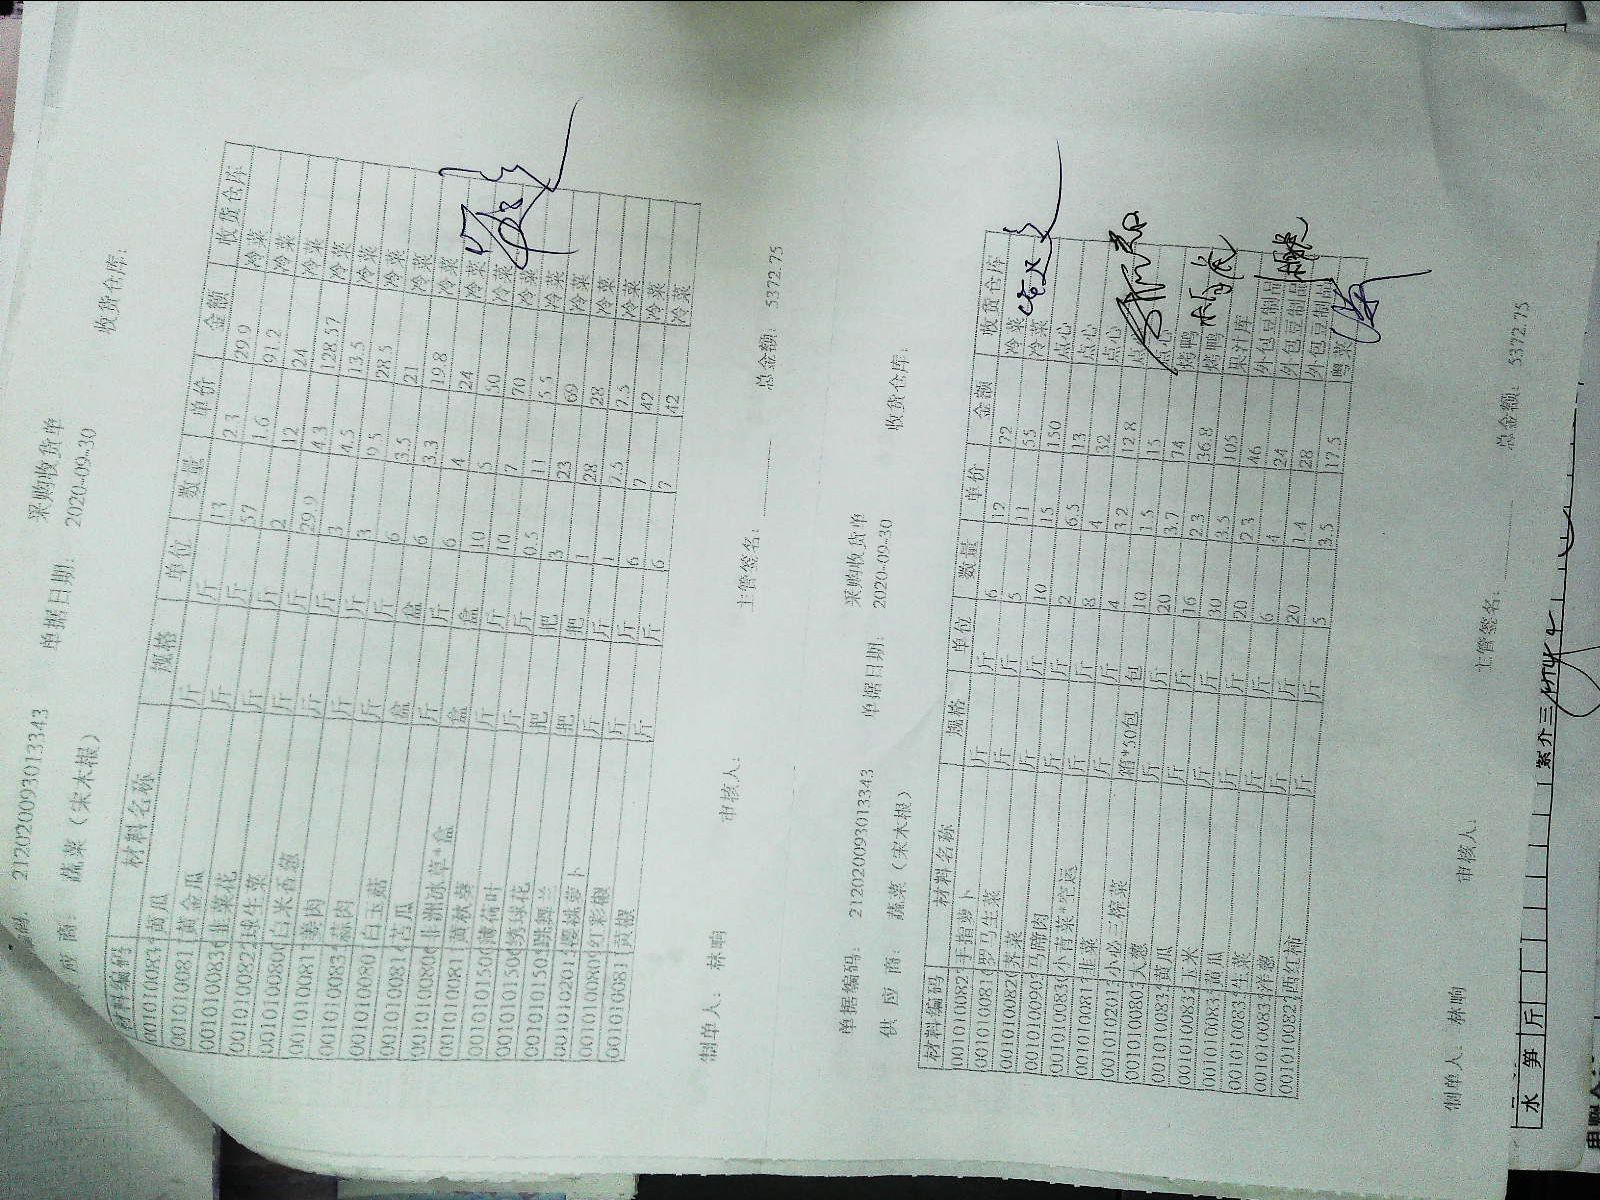 采购收货单
编码: 21202009300133​43 单据日期: 2020-09-30
应 商: 蔬菜（宋木根） 收货仓库:
材料编码 材料名称 规格 单位 数量 单价 金额 收货仓库
0010100834 黄瓜 斤 斤 13 2.3 29.9 冷菜
001010081 黄金瓜 斤 斤 57 1.6 91.2 冷菜
0010100836 韭菜花 斤 斤 2 12 24 冷菜
0010100822 球生菜 斤 斤 29.9 4.3 128.57 冷菜
0010100800 白米香葱 斤 斤 3 4.5 13.5 冷菜
001010081 姜肉 斤 斤 3 9.5 28.5 冷菜
001010083 蒜肉 斤 斤 6 3.5 21 冷菜
001010080 白玉菇 盒 盒 6 3.3 19.8 冷菜
0010100814 苦瓜 斤 斤 6 4 24 冷菜
0010100806 非洲冰草*盒 盒 盒 10 5 50 冷菜
001010081 黄秋葵 斤 斤 10 7 70 冷菜
001010150 薄荷叶 斤 斤 0.5 11 5.5 冷菜
001010150 绣球花 把 把 3 23 69 冷菜
001010150 跳舞兰 把 把 1 28 28 冷菜
001010201 樱桃萝卜 斤 斤 1 7.5 7.5 冷菜
0010100809 红彩椒 斤 斤 6 7 42 冷菜
001010081 黄椒 斤 斤 6 7 42 冷菜
制单人: 林响 审核人: 主管签名: 总金额: 5372.75
采购收货单
单据编码: 212020093013343 单据日期: 2020-09-30
供 应 商: 蔬菜（宋木根） 收货仓库:
材料编码 材料名称 规格 单位 数量 单价 金额 收货仓库
001010082 手指萝卜 斤 斤 6 12 72 冷菜
001010081 罗马生菜 斤 斤 5 11 55 冷菜
001010082 荠菜 斤 斤 10 15 150 点心
001010090 马蹄肉 斤 斤 2 6.5 13 点心
001010083 小青菜*空运 斤 斤 8 4 32 点心
001010081 韭菜 斤 斤 4 3.2 12.8 点心
001010201 小必三榨菜 箱*50包 包 10 1.5 15 点心
001010080 大葱 斤 斤 20 3.7 74 烤鸭
001010083 黄瓜 斤 斤 16 2.3 36.8 烤鸭
001010083 玉米 斤 斤 30 3.5 105 果汁库
001010083 黄瓜 斤 斤 20 2.3 46 外包豆制品
001010083 生菜 斤 斤 6 4 24 外包豆制品
001010083 洋葱 斤 斤 20 1.4 28 外包豆制品
001010082 西红柿 斤 斤 5 3.5 17.5 粤菜
制单人: 林响 审核人: 主管签名: 总金额: 5372.75
水 笋 斤